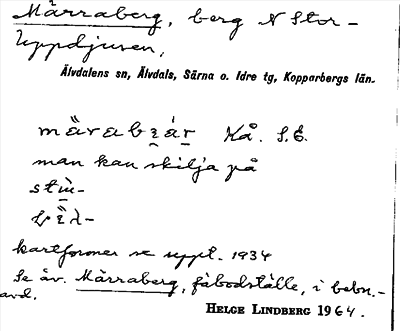 Märraberg, berg N Stor-
Uppdjusen,
Älvdalens sn, Älvdals, Särna o. Idre tg, Kopparbergs län.
märabär Kå. S.E.
man kan skilja på
stu-
kartformer se uppt. 1934
Se äv. Märraberg, fäbodställe, i bebn.-
avd.
HELGE LINDBERG 1964.